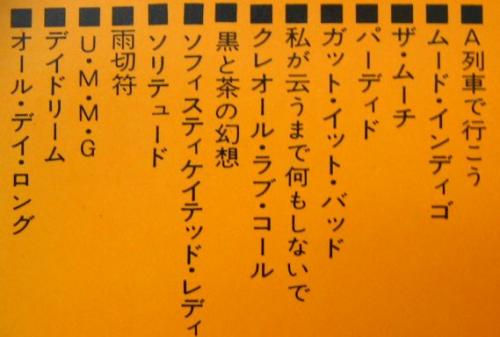 ■A列車で行こう
■ムード・インディゴ
■ザ・ムーチ
■パーディド
■ガット・イット・バッド
■私が云うまで何もしないで
■クレオール・ラブ・コール
■黒と茶の幻想
■ソフィスティケイテッド・レディ
■ソリテュード
■雨切符
■U・M・M・G
■デイドリーム
■オール・デイ・ロング